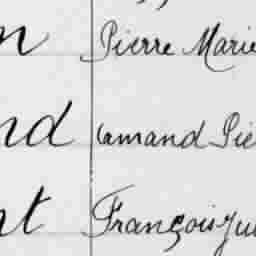 n Pierre Marie
nd Camand Pie
nt François Jul